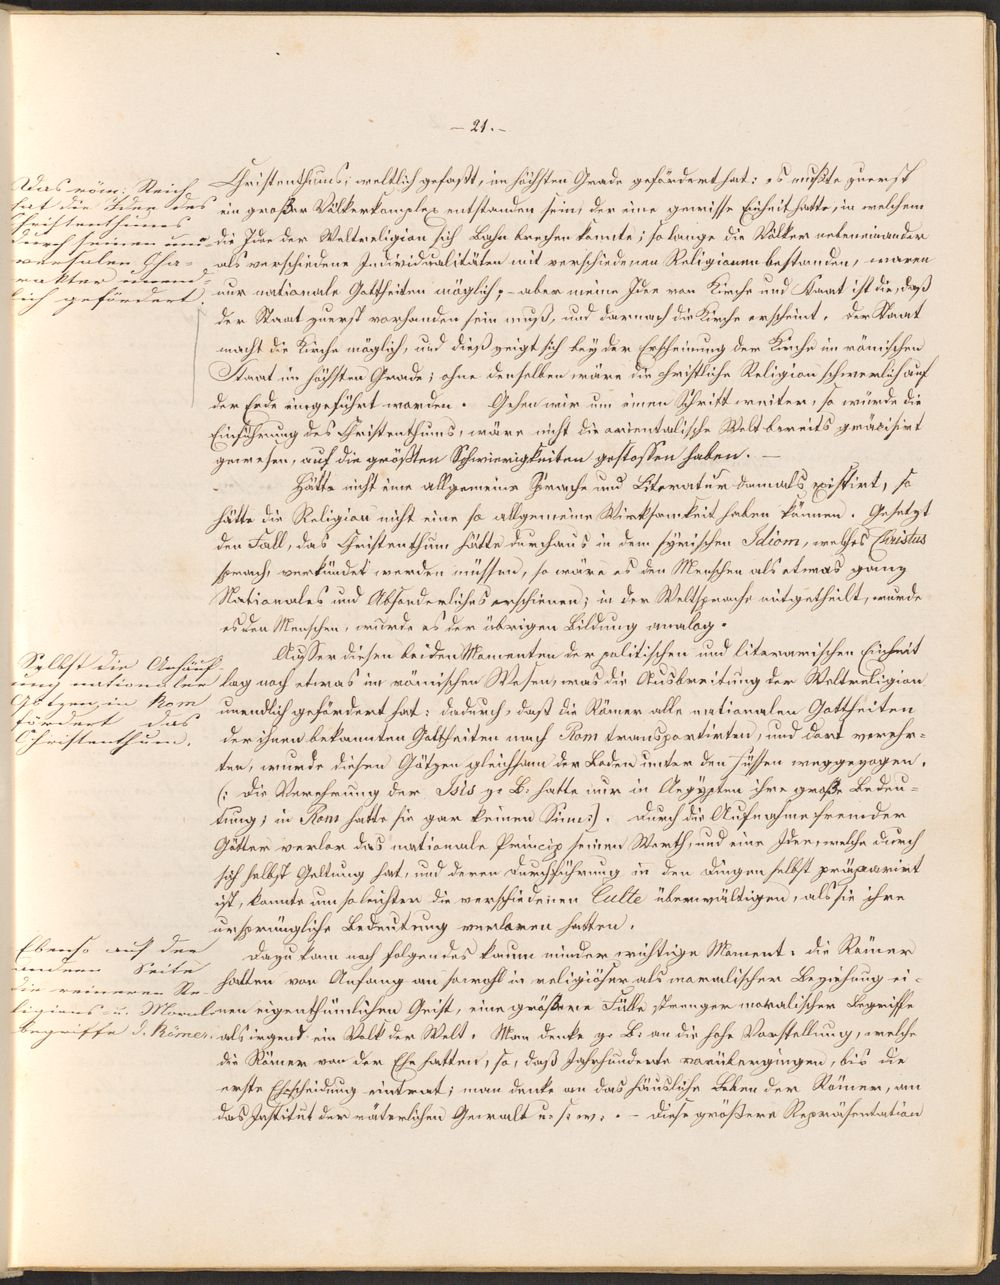 - 21. -
Das röm: Reich
hat die Idee des
Christenthums
durch seinen uni-
versalen Cha-
rakter unend-
lich gefördert.
Christenthums, weltlich gefaßt, im höchsten Grade gefördert hat: es mußte zuerst
ein großer Völkerkomplex entstanden sein, der eine gewisse Einheit hatte, in welchem
die Idee der Weltreligion sich Bahn brechen konnte; so lange die Völker nebeneinander
als verschiedene Individualitäten mit verschiedenen Religionen bestanden, waren
nur nationale Gottheiten möglich; - aber meine Idee von Kirche und Staat ist die, daß
der Staat zuerst vorhanden sein muß, und darnach die Kirche erscheint. Der Staat
macht die Kirche möglich, und dieß zeigt sich bey der Erscheinung der Kirche im römischen
Staat im höchsten Grade; ohne denselben wäre die christliche Religion schwerlich auf
der Erde eingeführt worden. Gehen wir um einen Schritt weiter, so würde die
Einführung des Christenthums, wäre nicht die orientalische Welt bereits gräcisirt
gewesen, auf die größten Schwierigkeiten gestossen haben. —
Hätte nicht eine allgemeine Sprache und Literatur damals existirt, so
hätte die Religion nicht eine so allgemeine Wirksamkeit haben können. Gesetzt
den Fall, das Christenthum hätte durchaus in dem syrischen Idiom, welches Christus
sprach, verkündet werden müssen, so wäre es den Menschen als etwas ganz
Nationales und Absonderliches erschienen; in der Weltsprache mitgetheilt, wurde
es den Menschen, wurde es der übrigen Bildung analog.
Selbst die Anhäuf-
ung nationaler
Götzen in Rom
fördert das
Christenthum.
Ausser diesen beiden Momenten der politischen und literarischen Einheit
lag noch etwas im römischen Wesen, was die Ausbreitung der Weltreligion
unendlich gefördert hat: dadurch, daß die Römer alle nationalen Gottheiten
der ihnen bekannten Gottheiten nach Rom transportirten, und dort verehr-
ten, wurde diesen Götzen gleichsam der Boden unter den Füssen weggezogen.
(: Die Verehrung der Isis z. B. hatte nur in Aegypten ihre große Bedeu-
tung; in Rom hatte sie gar keinen Sinn:). Durch die Aufnahme fremder
Götter verlor das nationale Princip seinen Werth, und eine Idee, welche durch
sich selbst Geltung hat, und deren Durchführung in den Dingen selbst präparirt
ist, konnte um so leichter die verschiedenen Culte überwältigen, als sie ihre
ursprüngliche Bedeutung verloren hatten.
Ebenso auf der
andern Seite
die reineren Re-
ligions- u. Moral-
begriffe d. Römer.
Dazu kam noch folgendes kaum minder wichtige Moment. die Römer
hatten von Anfang an sowohl in religiöser als moralischer Beziehung ei-
nen eigenthümlichen Geist, eine größere Fülle strenger moralischer Begriffe
als irgend ein Volk der Welt. Man denke z. B. an die hohe Vorstellung, welche
die Römer von der Ehe hatten, so, daß Jahrhunderte vorübergingen, bis die
erste Ehescheidung eintrat; man denke an das häusliche Leben der Römer, an
das Institut der väterlichen Gewalt u. s. w. . - Diese größere Repräsentation